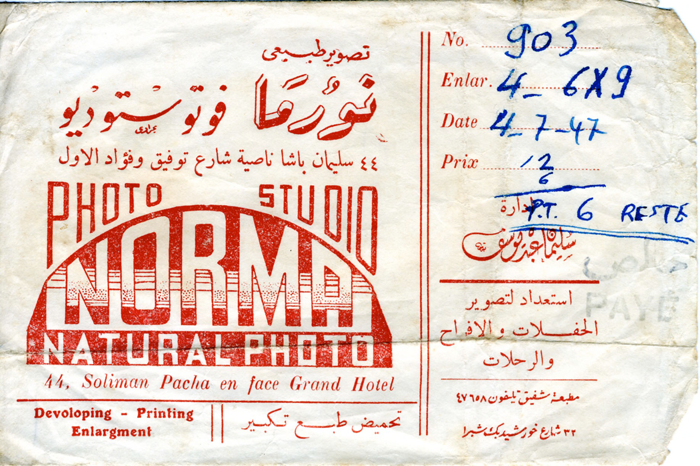 تصوير طبيعى
نورما فوتو ستوديو
٤٤ سليمان باشا ناصية شارع توفيق وفؤاد الاول
PHOTO STUDIO
NORMA
NATURAL PHOTO
44, Soliman Pacha en face Grand Hotel
Devoloping - Printing
Enlargment
تحميض طبع تكبير
No. 903
Enlar. 4_ 6X9
Date 4-7-47
Prix 12
6
P.T. 6 RESTE
إدارة
سليمان عبد يوسف
خالص
PAYÉ
استعداد لتصوير
الحفلات والافراح
والرحلات
مطبعة شفيق تليفون ٤٧٦٥٨
٣٢ شارع خورشيد بك شبرا